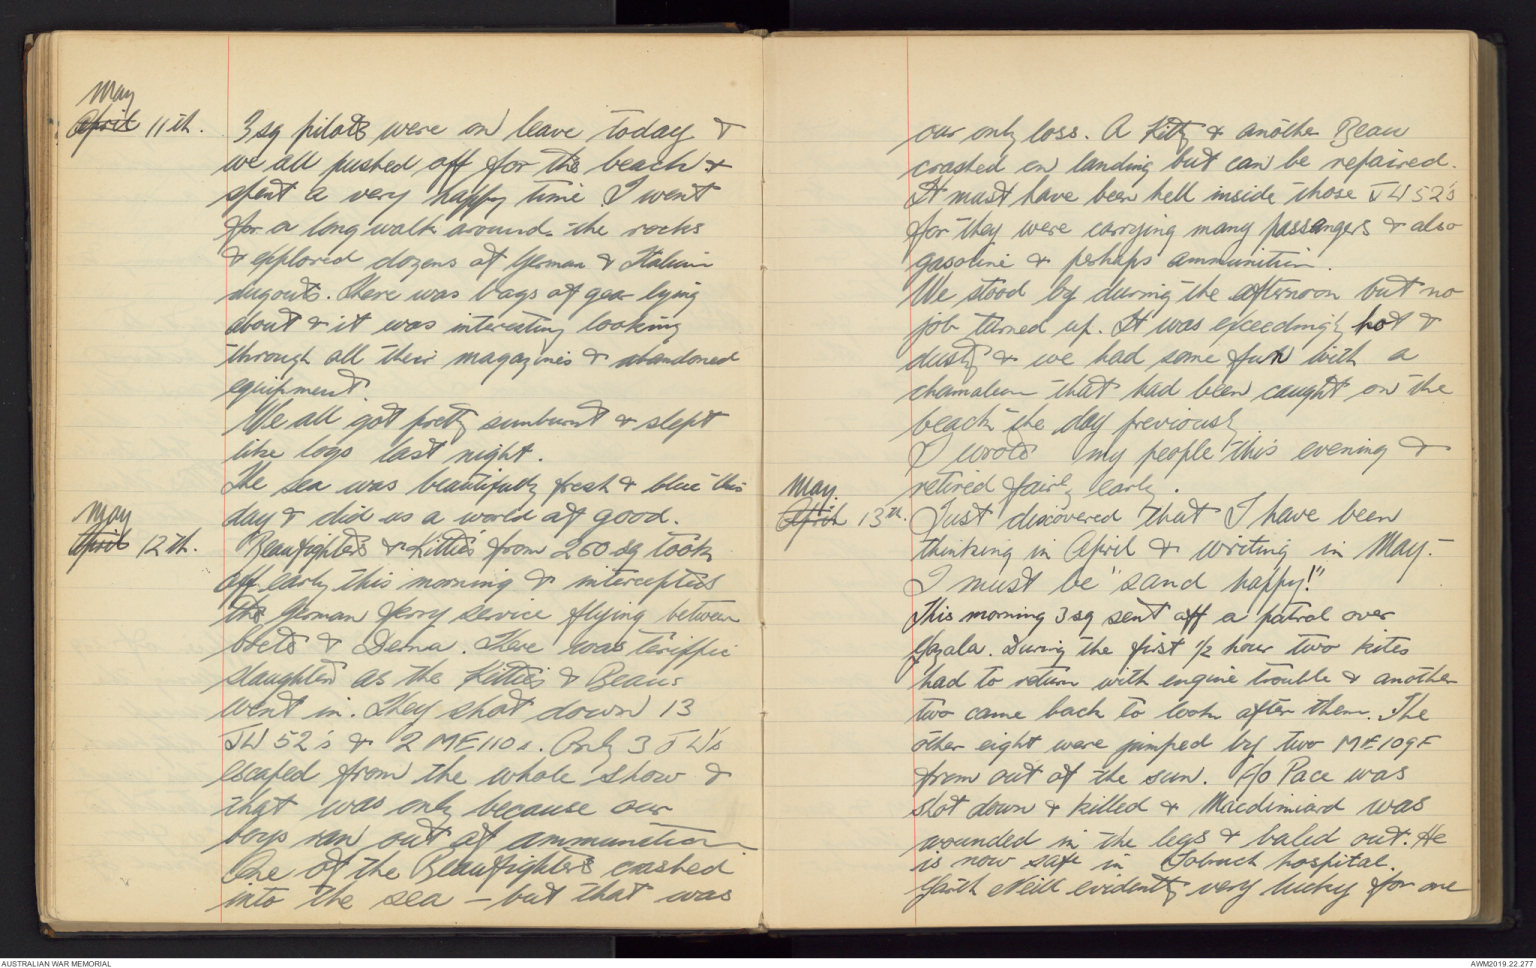 May
April 11th. 3 sq pilots were on leave today &
we all pushed off for the beach &
spent a very happy time I went
for a long walk around the rocks
& explored dozens of German & Italian
dugouts. There was bags of gear lying
about & it was interesting looking
through all their magazines & abandoned
equipment.
We all got pretty sunburnt & slept
like logs last night.
The sea was beautifully fresh & blue this
day & did us a world of good.
May
April 12th. Beaufighters & Kitties from 260 sq took
off early this morning & intercepted
the German ferry service flying between
& Derna. There was teriffic
slaughter as the Kitties & Beaus
went in. They shot down 13
JU 52's & 2 ME110s. Only 3 JU's
escaped from the whole show &
that was only because our
boys ran out of ammunition.
One of the Beaufighters crashed
into the sea – but that was
our only loss. A Kitty & another Beau
crashed on landing but can be repaired.
It must have been hell inside those JU 52's
for they were carrying many passangers & also
gasoline & perhaps ammunition.
We stood by during the afternoon but no
job turned up. It was exceedingly hot &
dusty & we had some fun with a
chamaleon that had been caught on the
beach the day previously
I wrote my people this evening &
retired fairly early.
May.
April 13th. Just discovered that I have been
thinking in April & writing in May.
I must be "sand happy!"
This morning 3 sq sent off a patrol over
Gazala. During the first 1/2 hour two kites
had to return with engine trouble & another
two came back to look after them. The
other eight were jumped by two ME109F
from out of the sun. F/o Pace was
shot down & killed & was
wounded in the legs & baled out. He
is now safe in Tobruch hospital.
Garth Neill evidently very lucky for one
AUSTRALIAN WAR MEMORIAL
AWM2019.22.277